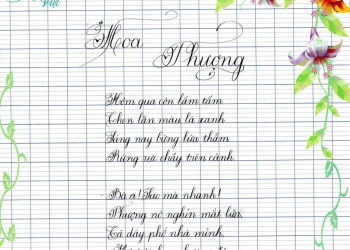 Việt
Hoa
Phượng
Hôm qua còn lấm tấm
Chen lẫn màu lá xanh
Sáng nay bừng lửa thẫm
Rừng rực cháy trên cành.
- Bà ơi! Sao mà nhanh!
Phượng nở nghìn mắt lửa,
Cả dãy phố nhà mình,